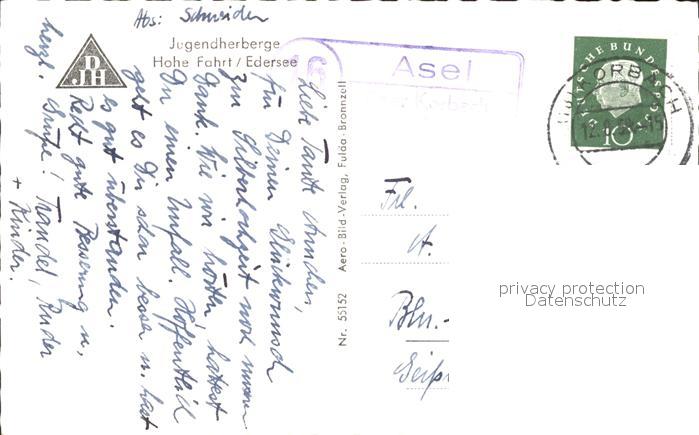 Abs: Schneider
DJH
Jugendherberge
Hohe Fahrt / Edersee
16
Asel
über Korbach
DEUTSCHE BUNDESPOST
10
KORBACH
12.
Liebe Tante Annchen,
für Deinen Glückwunsch
zur Silberhochzeit noch unseren
Dank. Wie wir hörten, hattest
Du einen Unfall. Hoffentlich
geht es Dir schon besser u. hast
es gut überstanden.
Recht gute Besserung u.
herzl. Grüße!
+ Kinder.
Nr. 55152 Aero-Bild-Verlag, Fulda-Bronnzell
Frl.
A.
Bln.-
privacy protection
Datenschutz